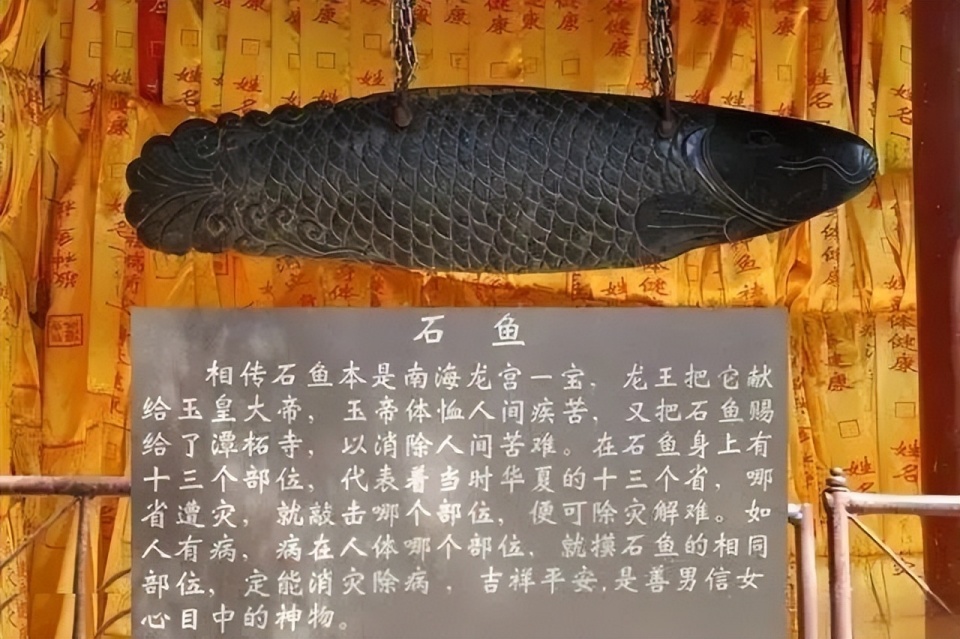 石 鱼
相传石鱼本是南海龙宫一宝，龙王把它献
给玉皇大帝，玉帝体恤人间疾苦，又把石鱼赐
给了潭柘寺，以消除人间苦难。在石鱼身上有
十三个部位，代表着当时华夏的十三个省，哪
省遭灾，就敲击哪个部位，便可除灾解难。如
人有病，病在人体哪个部位，就摸石鱼的相同
部位，定能消灾除病，吉祥平安，是善男信女
心目中的神物。